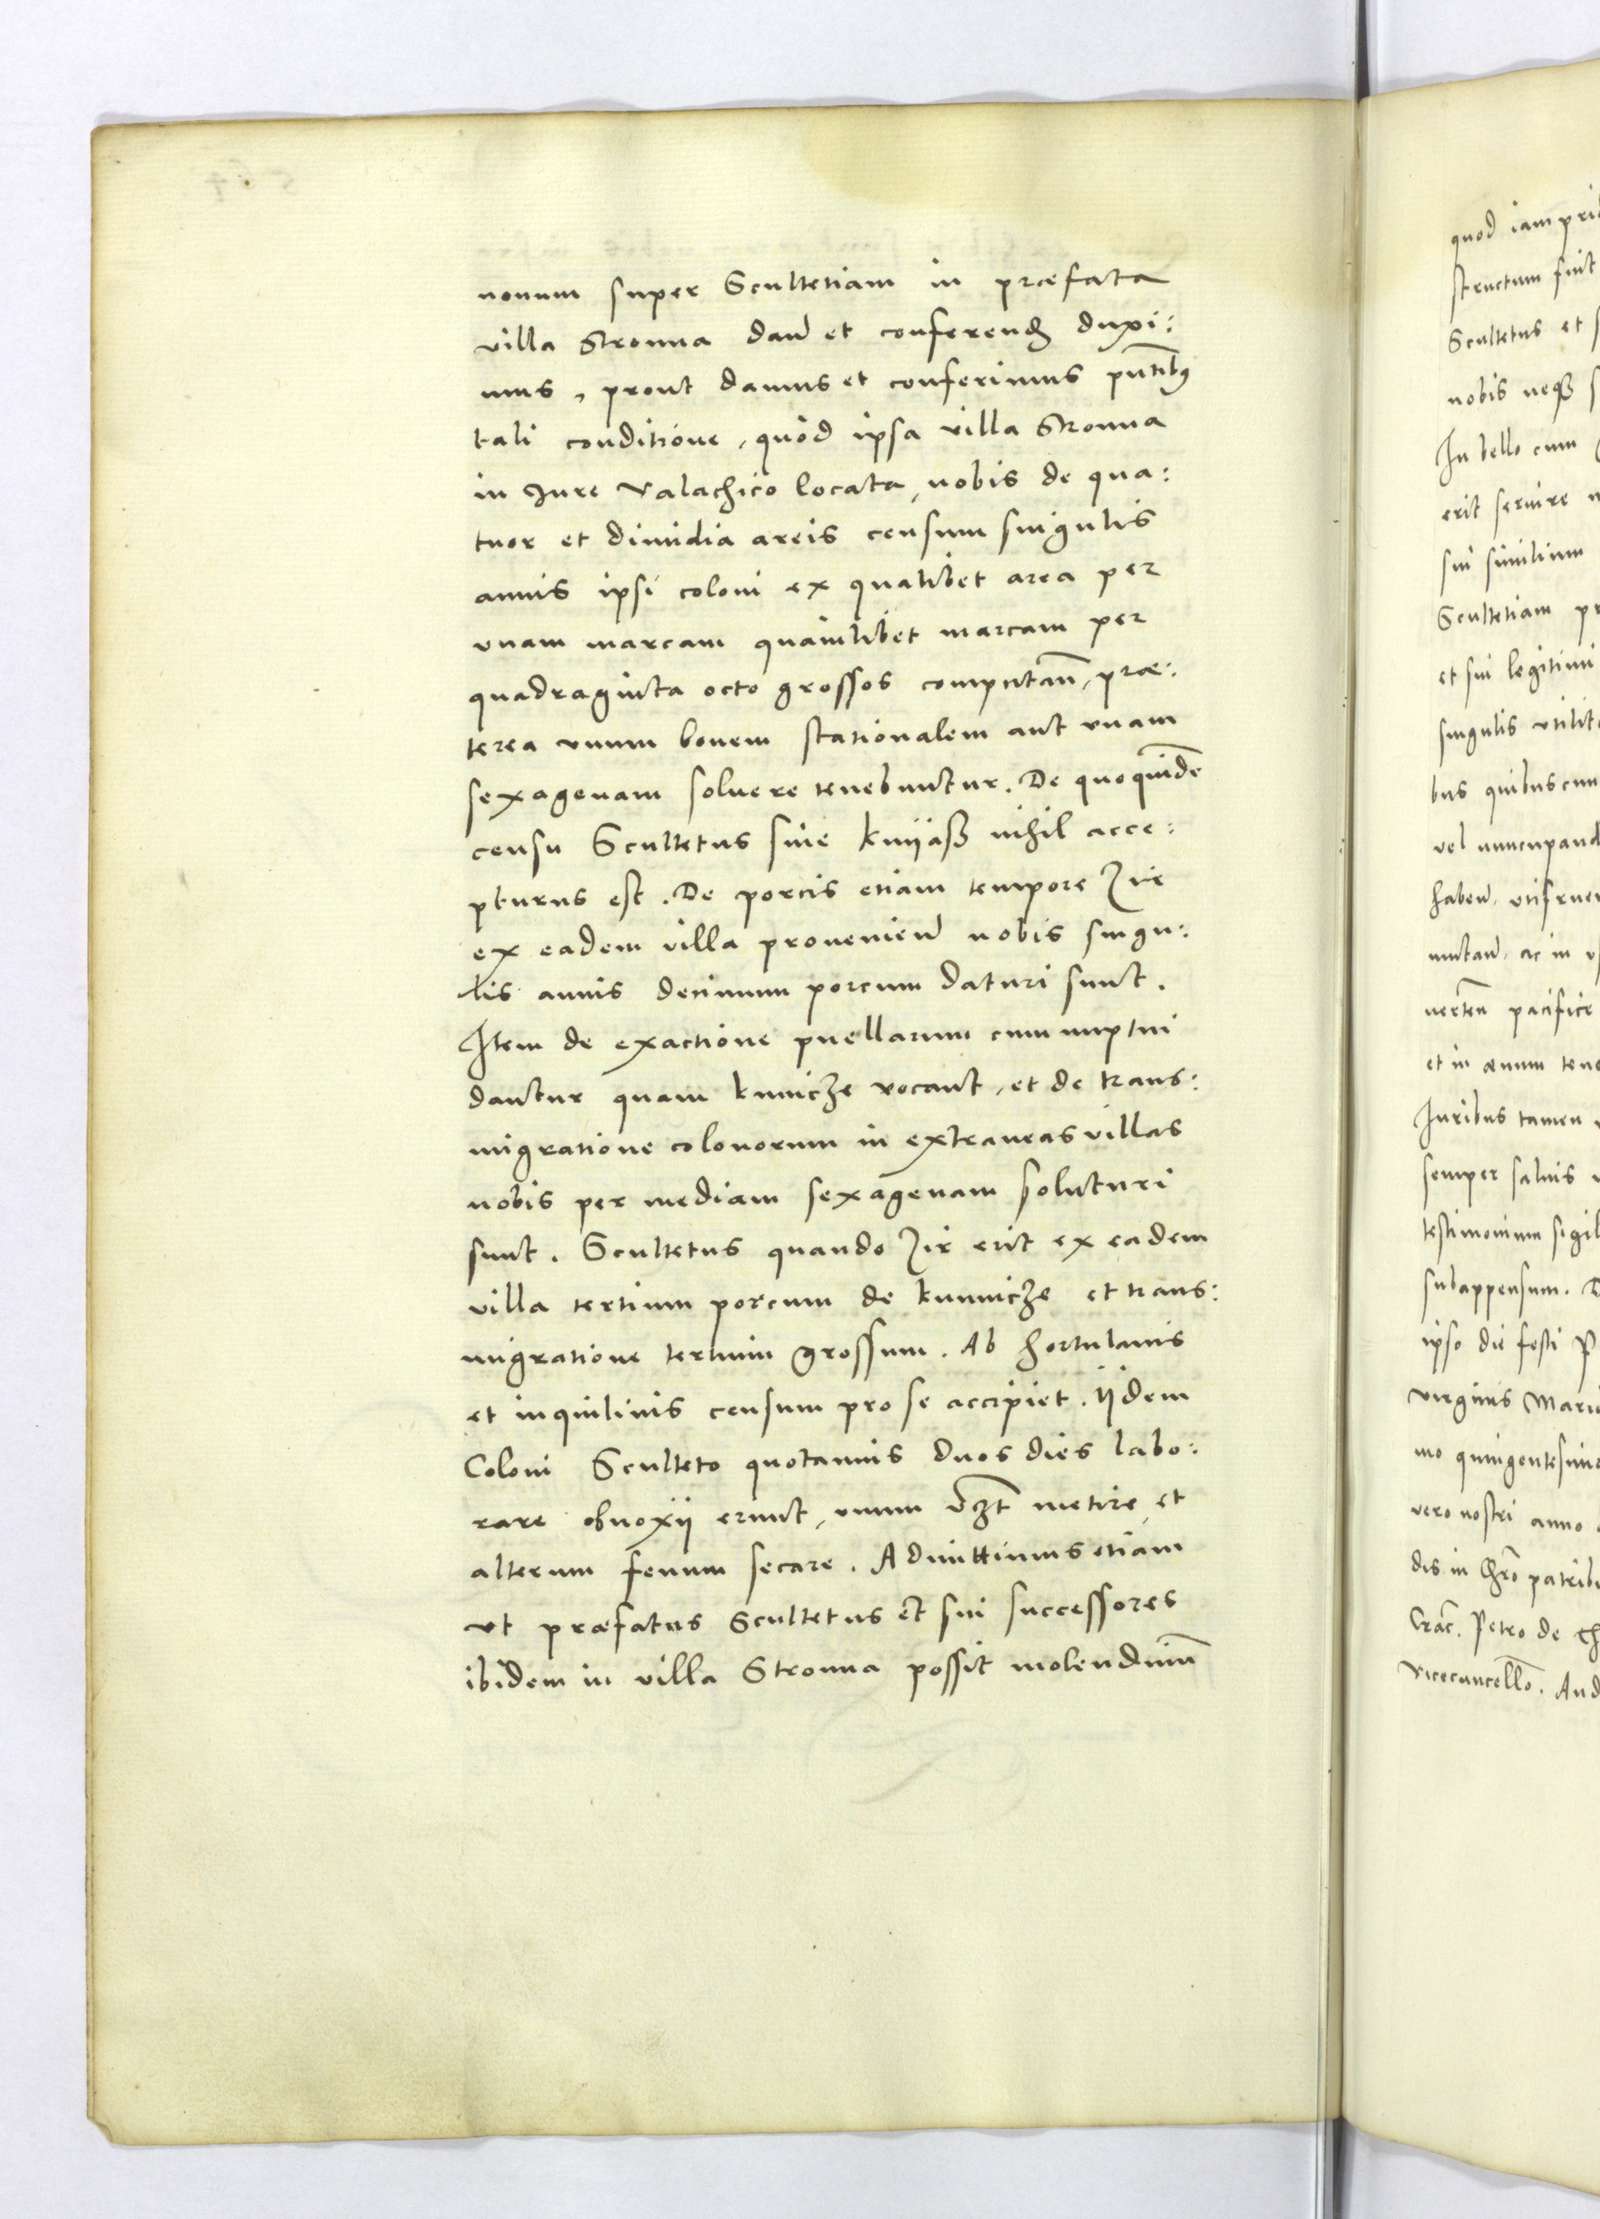 nouum super Scultetiam in præfata
villa Stronna dand̃ et conferend̃ duxi:
mus, prout damus et conferimus pñtibꝫ
tali conditione, quòd ipsa villa Stronna
in Jure Valachico locata, nobis de qua:
tuor et dimidia areis censum singulis
annis ipsi coloni ex qualibet area per
vnam marcam quamlibet marcam per
quadraginta octo grossos computañ, præ:
terea vnum bouem stationalem aut vnam
sexagenam soluere tenebuntur. De quo quidẽ
censu Scultetus siue knijaß nihil acce:
pturus est. De porcis etiam tempore Zir
ex eadem villa prouenieñ nobis singu:
lis annis decimum porcum daturi sunt.
Item de exactione puellarum cum nuptui
dantur quam kunicze vocant, et de trans:
migratione colonorum in extraneas villas
nobis per mediam sexagenam soluturi
sunt. Scultetus quando Zir erit ex eadem
villa tertium porcum de kunnicze et trans:
migratione tertium grossum. Ab hortulanis
et inquilinis censum pro se accipiet. ijdem
Coloni Sculteto quotannis duos dies labo:
rare obnoxij erunt, vnum vꝫt metire, et
alterum fenum secare. Admittimus etiam
vt præfatus Scultetus et sui successores
ibidem in villa Stronna possit molendinũ
quod iam prid
structum fuit
Scultetus et s
nobis neqꝫ s
In bello cum
erit seruire n
sui similium
Scultetiam pr
et sui legitimi
singulis vtilit
bus quibuscun
vel nuncupand
habeñ. vtifruen
mutand̃. ac in vs
verteñ pacifice
et in æuum tene
Juribus tamen
semper saluis
testimonium sigil
subappensum. D
ipso die festi P
virginis Mari
mo quingentesimo
vero nostri anno
dis in Chrõ patribu
Crac. Petro de Ch
Vicecancellõ. And